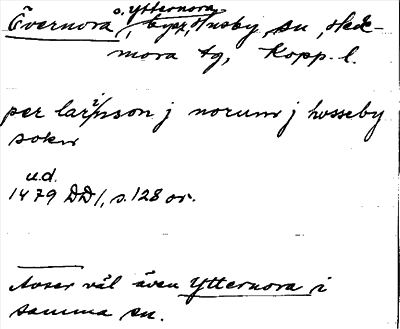 o. Ytternora
Övernora, byar, Husby sn, Hede-
mora tg, Kopp. l.
per larisson j norum j hosseby
sokn
u.d.
1479 DD 1, s. 128 or.
Avser väl även Ytternora i
samma sn.